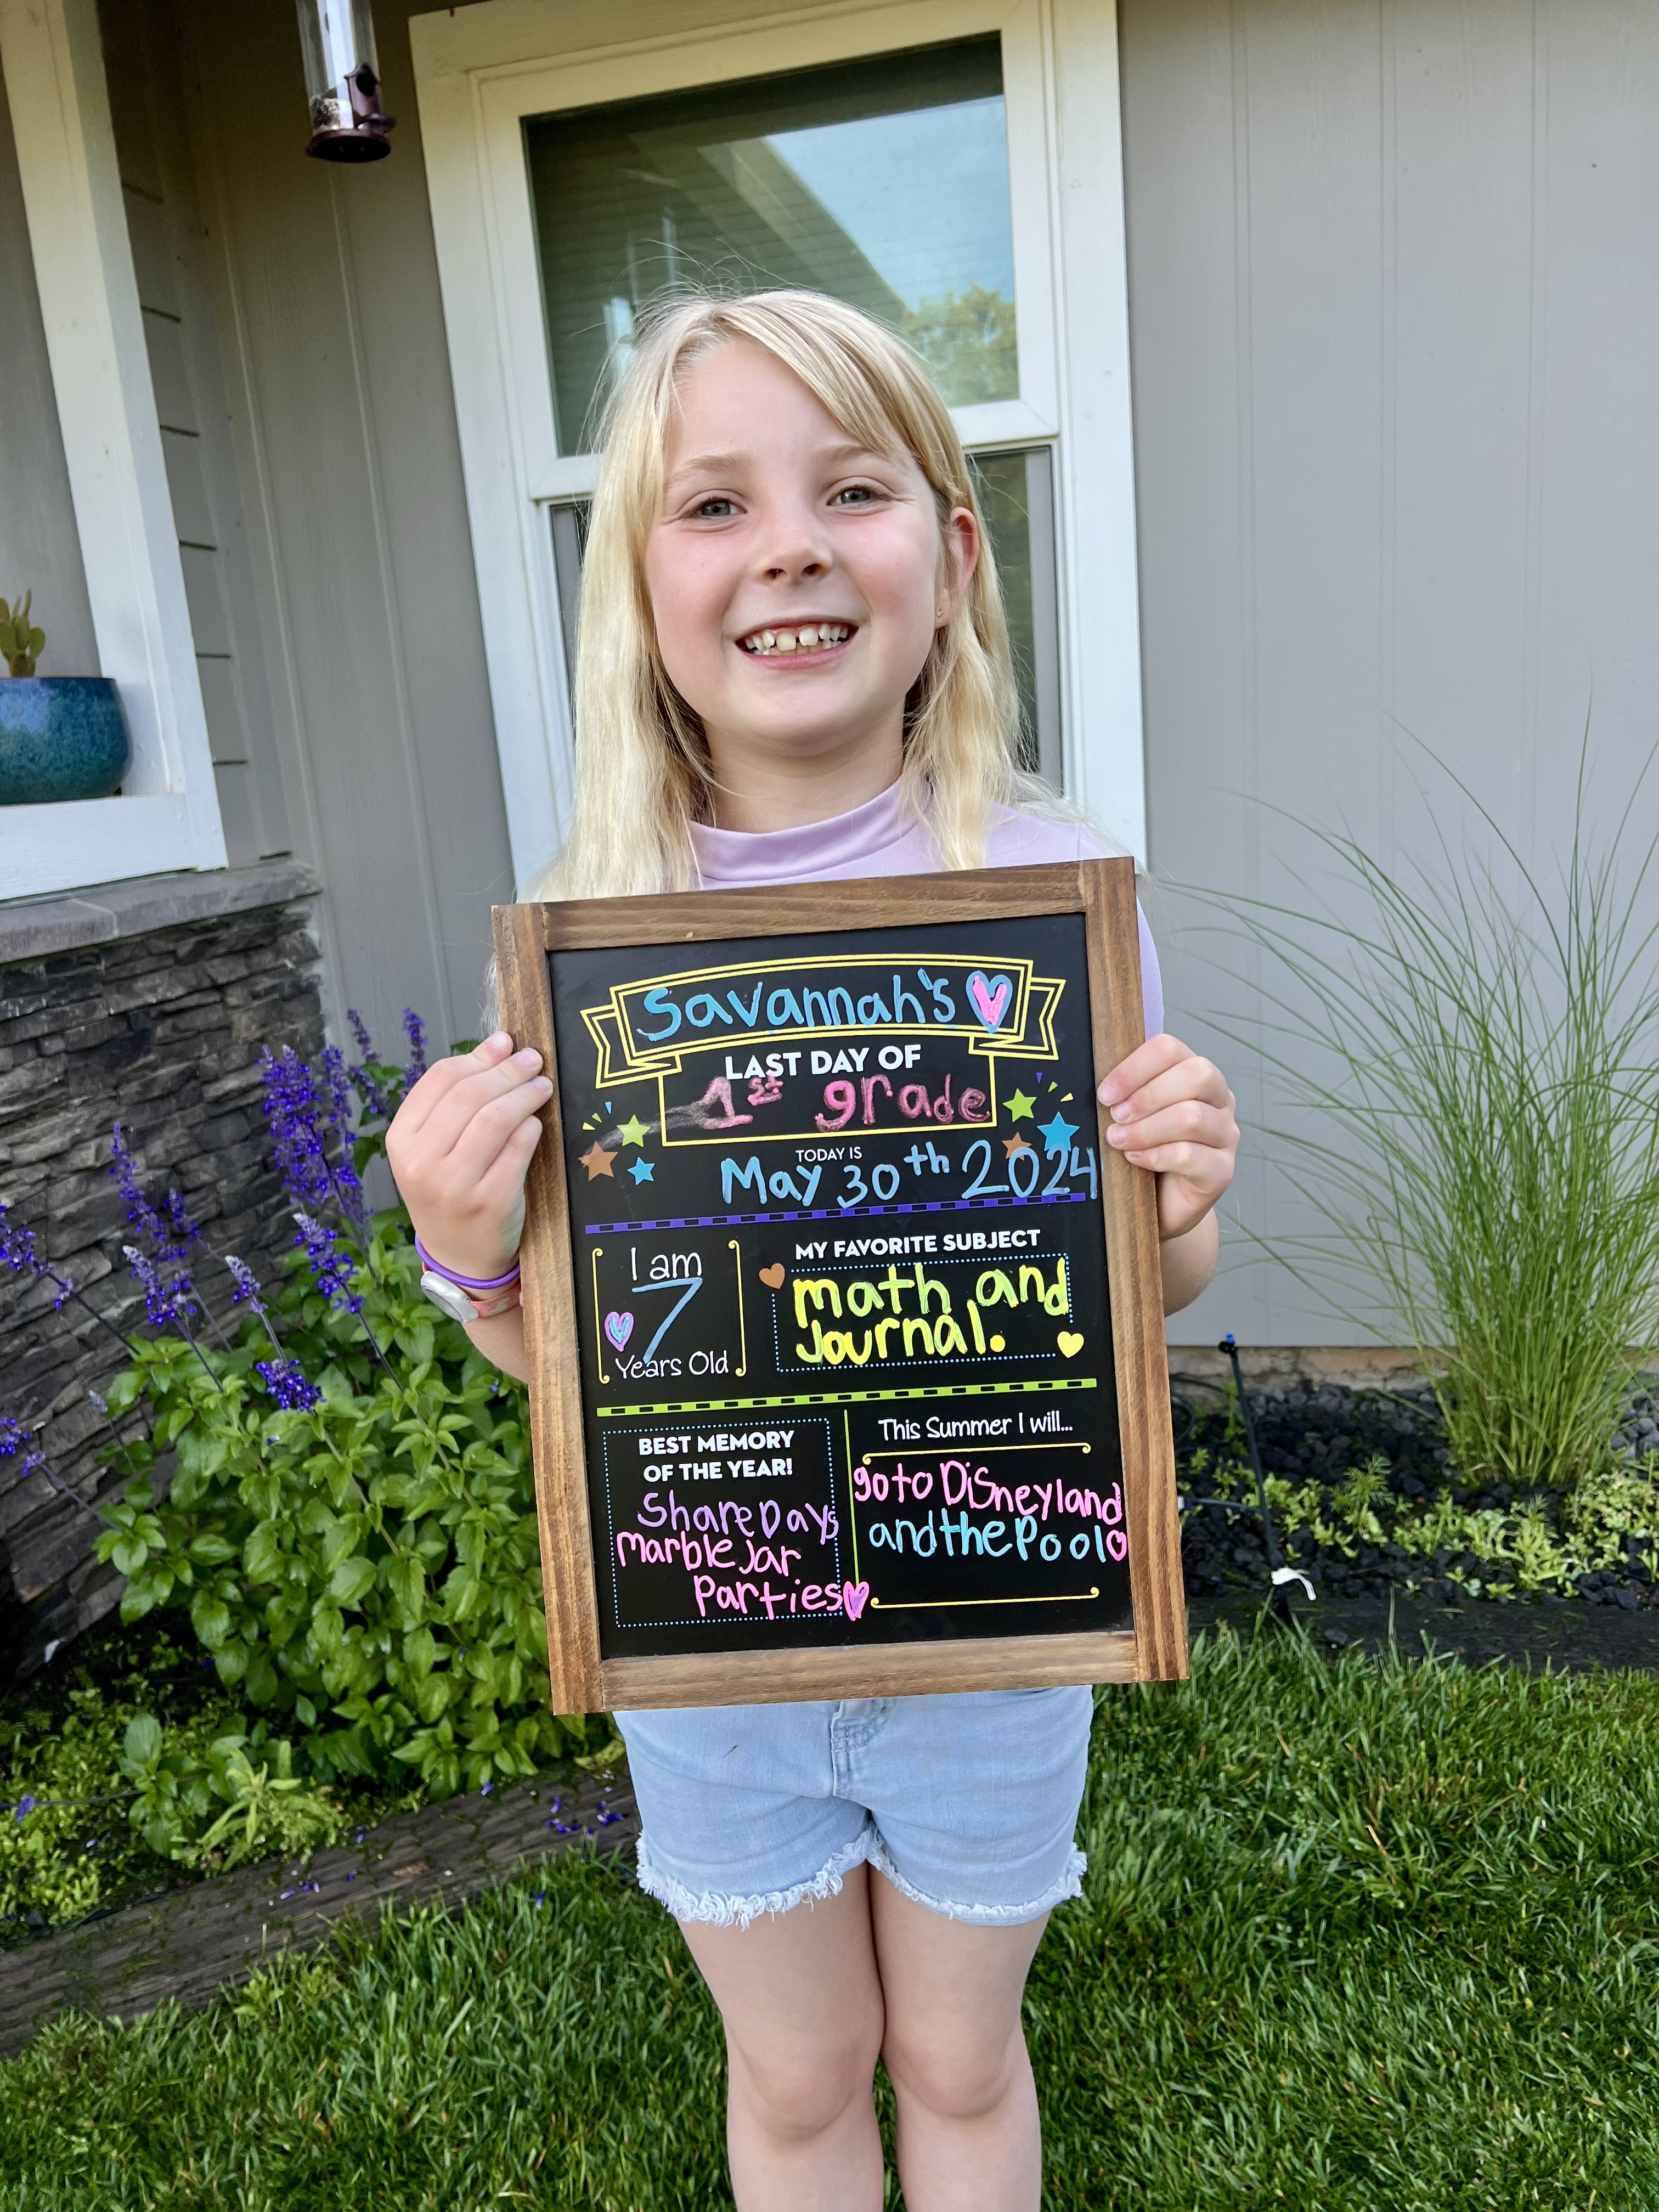 Savannah's
LAST DAY OF
1st grade
TODAY IS
May 30th 2024
I am
7
Years Old
MY FAVORITE SUBJECT
math and
Journal.
BEST MEMORY
OF THE YEAR!
Share Days
Marble Jar
Parties
This Summer I will...
go to Disneyland
and the Pool